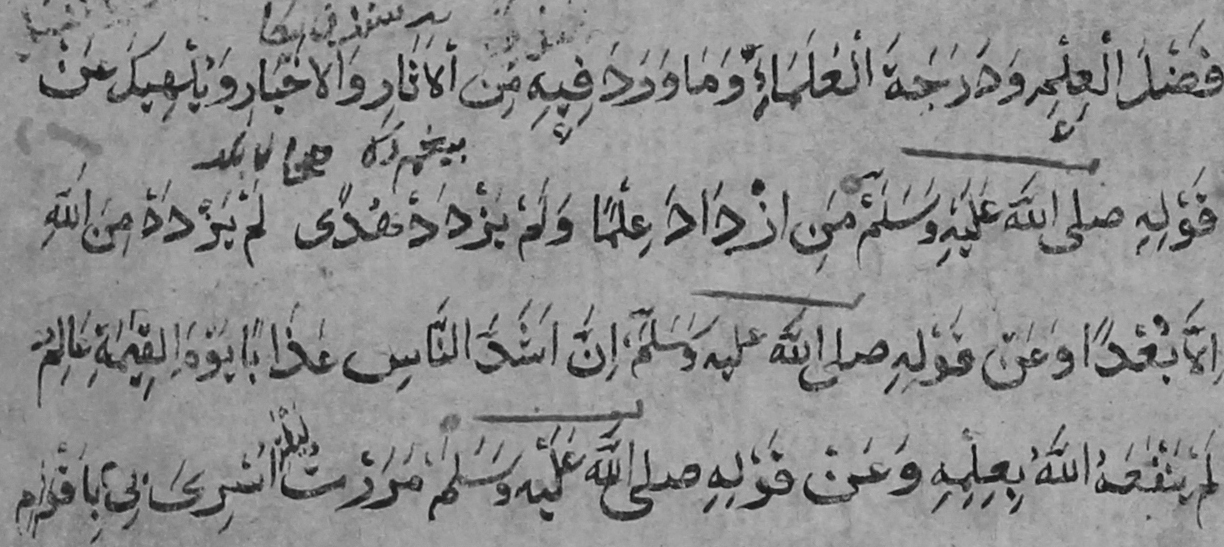 فَضْلَ الْعِلْمِ وَدَرَجَةَ الْعُلَمَاءِ وَمَا وَرَدَ فِيهِ مِنَ الْاٰثَارِ وَالْاَخْبَارِ وَيُلْهِيكَ عَنْ
قَوْلِهِ صلى اللّٰه عَلَيْهِ وَسَلَّمَ مَنِ ازْدَادَ عِلْمًا وَلَمْ يَزْدَدْ هُدًى لَمْ يَزْدَدْ مِنَ اللّٰهِ
اِلَّا بُعْدًا وَعَنْ قَوْلِهِ صلى اللّٰه عليه وَسَلَّمَ اِنَّ اَشَدَّ النَّاسِ عَذَابًا يَوْمَ الْقِيٰمَةِ عَالِمٌ
لَمْ يَنْفَعْهُ اللّٰهُ بِعِلْمِهِ وَعَنْ قَوْلِهِ صلى اللّٰه عَلَيْهِ وَسَلَّمَ مَرَرْتُ لَيْلَةَ اُسْرِىَ بِى بِاَقْوَامٍ